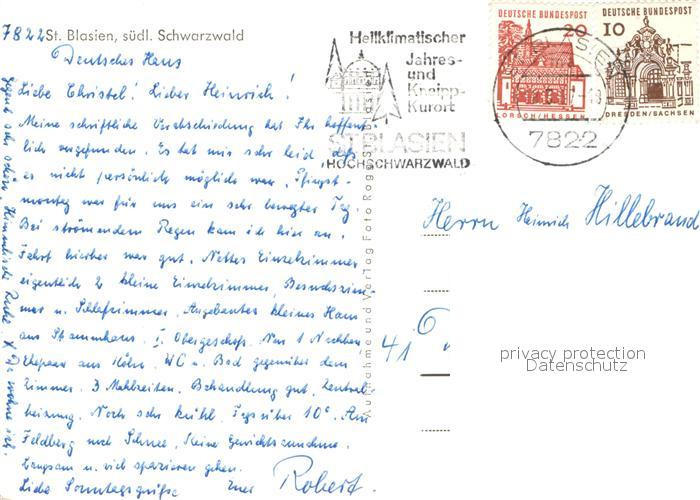 7822 St. Blasien, südl. Schwarzwald
Deutsches Haus
Liebe Christel! Lieber Heinrich!
Meine schriftliche Verabschiedung hat Ihr hoffent
lich vorgefunden. Es tat mir sehr leid, daß
es nicht persönlich möglich war. Pfingst-
montag war für uns ein sehr bewegter Tag.
Bei strömendem Regen kam ich hier an.
Fahrt hierher war gut. Nettes Einzelzimmer
eigentlich 2 kleine Einzelzimmer,
u. Schlafzimmer. Angebautes kleines Haus
am Stammhaus. I. Obergeschoß. Nur 1 Nachbar
Ehepaar aus Köln. WC u. Bad gegenüber dem
Zimmer. 3 Mahlzeiten. Behandlung gut. Zentral
heizung. Noch sehr kühl. Tags über 10°. Am
Feldberg noch Schnee. Keine Gewichtszunahme.
Langsam u. viel spazieren gehen.
Liebe Sonntagsgrüße Euer Robert.
Gegend sehr schön. Himmlische Ruhe. X Hier wohne ich.
Aufnahme und Verlag Foto
Heilklimatischer
Jahres-
und
Kneipp-
Kurort
ST. BLASIEN
HOCHSCHWARZWALD
DEUTSCHE BUNDESPOST
20
LORSCH/HESSEN
DEUTSCHE BUNDESPOST
10
DRESDEN/SACHSEN
7822
Herrn Heinrich Hillebrand
41
6
privacy protection
Datenschutz